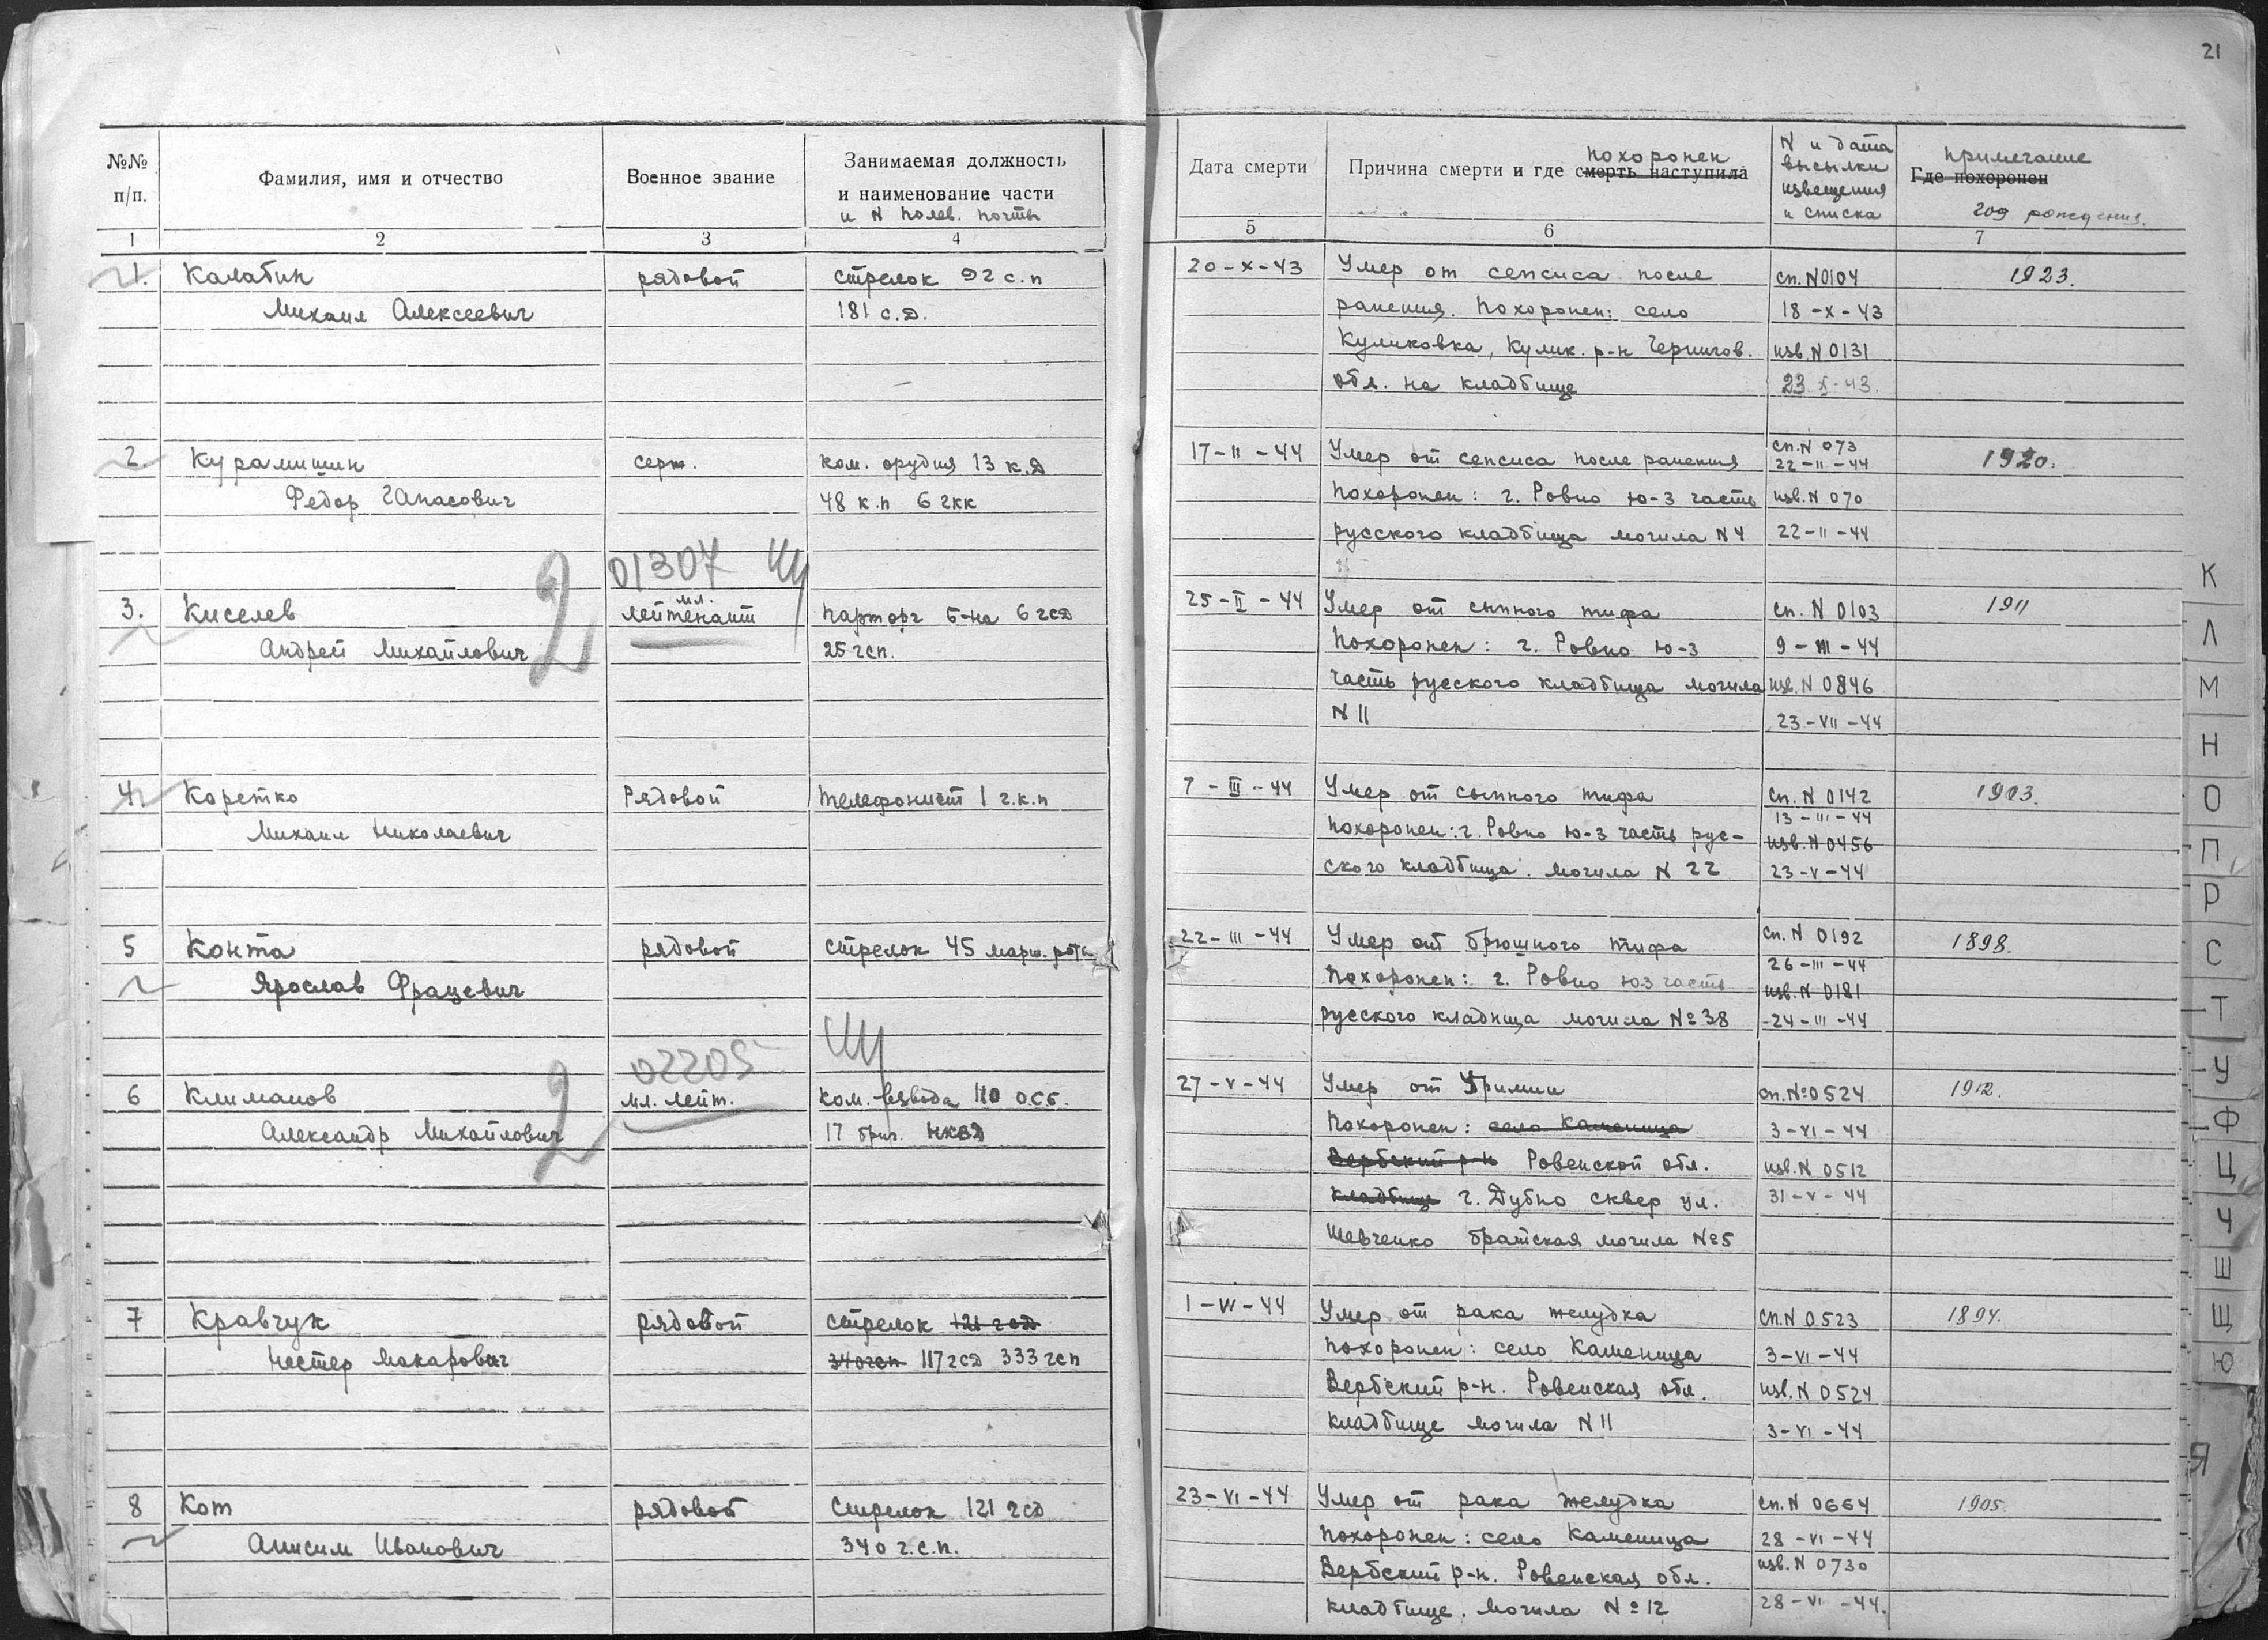 21
№№ п/п.
Фамилия, имя и отчество
Военное звание
Занимаемая должность
и наименование части
и N полев. почты
Дата смерти
похоронен
Причина смерти и где смерть наступила
N и дата
высылки
извещения
и списка
примечание
Где похоронен
год рождения.
1 2 3 4 5 6 7
1. Калабин рядовой стрелок 92 с.п 20-X-43 Умер от сепсиса после сп. N 0104 1923.
Михаил Алексеевич 181 с.д. ранения. Похоронен: село 18-X-43
Куликовка, Кулик. р-н Чернигов. изв. N 0131
обл. на кладбище 23 X-43.
2 Курамшин серж. ком. орудия 13 к.д 17-II-44 Умер от сепсиса после ранения сп. N 073 1920.
22-II-44
Федор 48 к.п 6 гкк Похоронен: г. Ровно ю-з часть изв. N 070
русского кладбища могила N 4 22-II-44
2 01307
мл.
3. Киселев лейтенант парторг б-на 6 гсд 25-II-44 Умер от сыпного тифа сп. N 0103 1911
Андрей Михайлович 25 гсп. Похоронен: г. Ровно ю-з 9-III-44
часть русского кладбища могила изв. N 0846
N 11 23-VII-44
4. Коретко Рядовой телефонист 1 г.к.п 7-III-44 Умер от сыпного тифа сп. N 0142 1903.
13-III-44
Михаил Николаевич Похоронен: г. Ровно ю-з часть рус- изв. N 0456
ского кладбища. могила N 22 23-V-44
5 Конта рядовой стрелок 45 марш. роты 22-III-44 Умер от брюшного тифа сп. N 0192 1898.
26-III-44
Ярослав Фрацевич Похоронен: г. Ровно юз часть изв. N 0181
русского кладища могила № 38 24-III-44
2 02205
6 Климанов мл. лейт. ком. взвода 110 осб. 27-V-44 Умер от Уримии сп. № 0524 1912.
Александр Михайлович 17 бриг. НКВД Похоронен: село Каменица 3-VI-44
Вербский р-н Ровенской обл. изв. N 0512
кладбище г. Дубно сквер ул. 31-V-44
Шевченко братская могила № 5
7 Кравчук рядовой стрелок 121 гсд 1-VI-44 Умер от рака желудка сп. N 0523 1894.
Нестер Макарович 340 гсп 117 гсд 333 гсп Похоронен: село Каменица 3-VI-44
Вербский р-н. Ровенская обл. изв. N 0524
кладбище могила N 11 3-VI-44
8 Кот рядовой Стрелок 121 гсд 23-VI-44 Умер от рака желудка сп. N 0664 1905.
Анисим Иванович 340 г.с.п. Похоронен: село Каменица 28-VI-44
Вербский р-н. Ровенская обл. изв. N 0730
кладбище. Могила № 12 28-VI-44.
К
Л
М
Н
О
П
Р
С
Т
У
Ф
Ц
Ч
Ш
Щ
Ю
Я